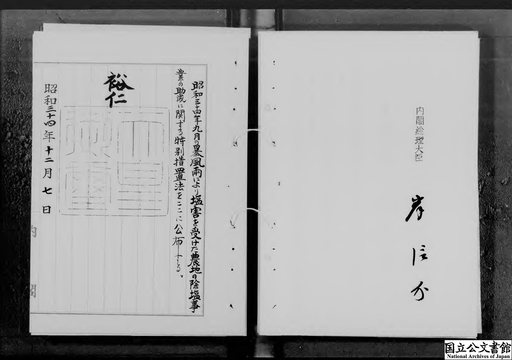 内閣総理大臣
岸信介
昭和三十四年九月の暴風雨により塩害を受けた農地の除塩事
業の助成に関する特別措置法をここに公布する。
裕仁
昭和三十四年十二月七日
内
閣
国立公文書館
National Archives of Japan